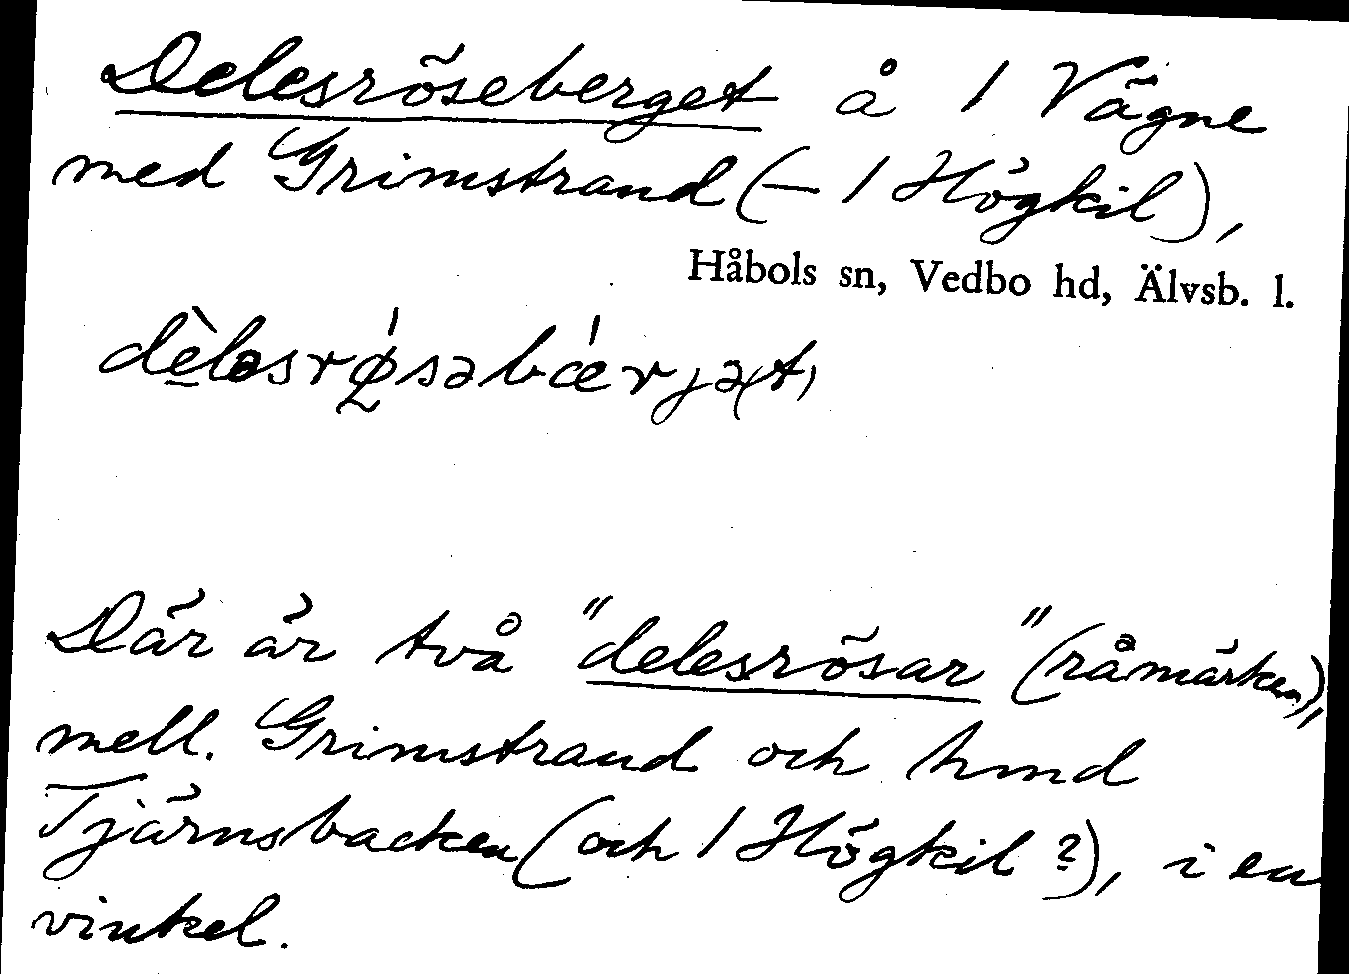 Delesröseberget å 1 Vägne
med Grimstrand (– 1 Högkil),
Håbols sn, Vedbo hd, Älvsb. l.
dè̱ləsrǿsəbǽrjə(t)
Där är två "delesrösar" (råmärken),
mell. Grimstrand och hmd
Tjärnsbacken (och 1 Högkil?), i en
vinkel.